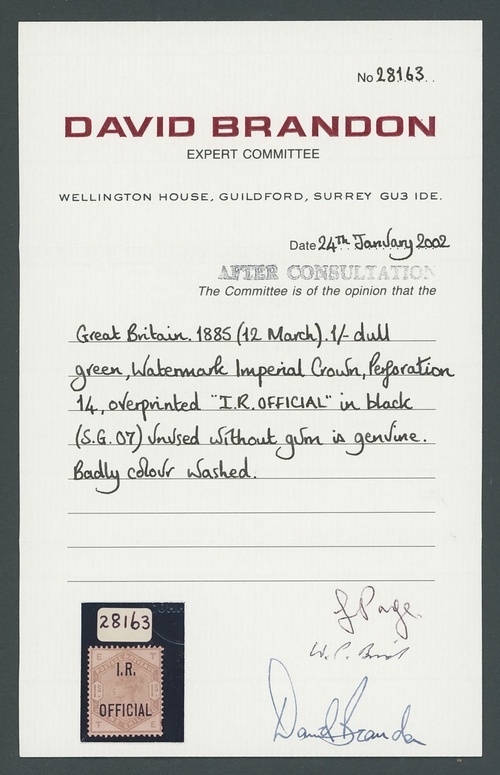 No 28163..
DAVID BRANDON
EXPERT COMMITTEE
WELLINGTON HOUSE, GUILDFORD, SURREY GU3 IDE.
Date 24th January 2002
AFTER CONSULTATION
The Committee is of the opinion that the
Great Britain. 1885 (12 March). 1/- dull
green, Watermark Imperial Crown, Perforation
14, overprinted "I.R. OFFICIAL" in black
(S.G. O7) unused without gum is genuine.
Badly colour washed.
28163
I.R.
OFFICIAL
T E
David Brandon